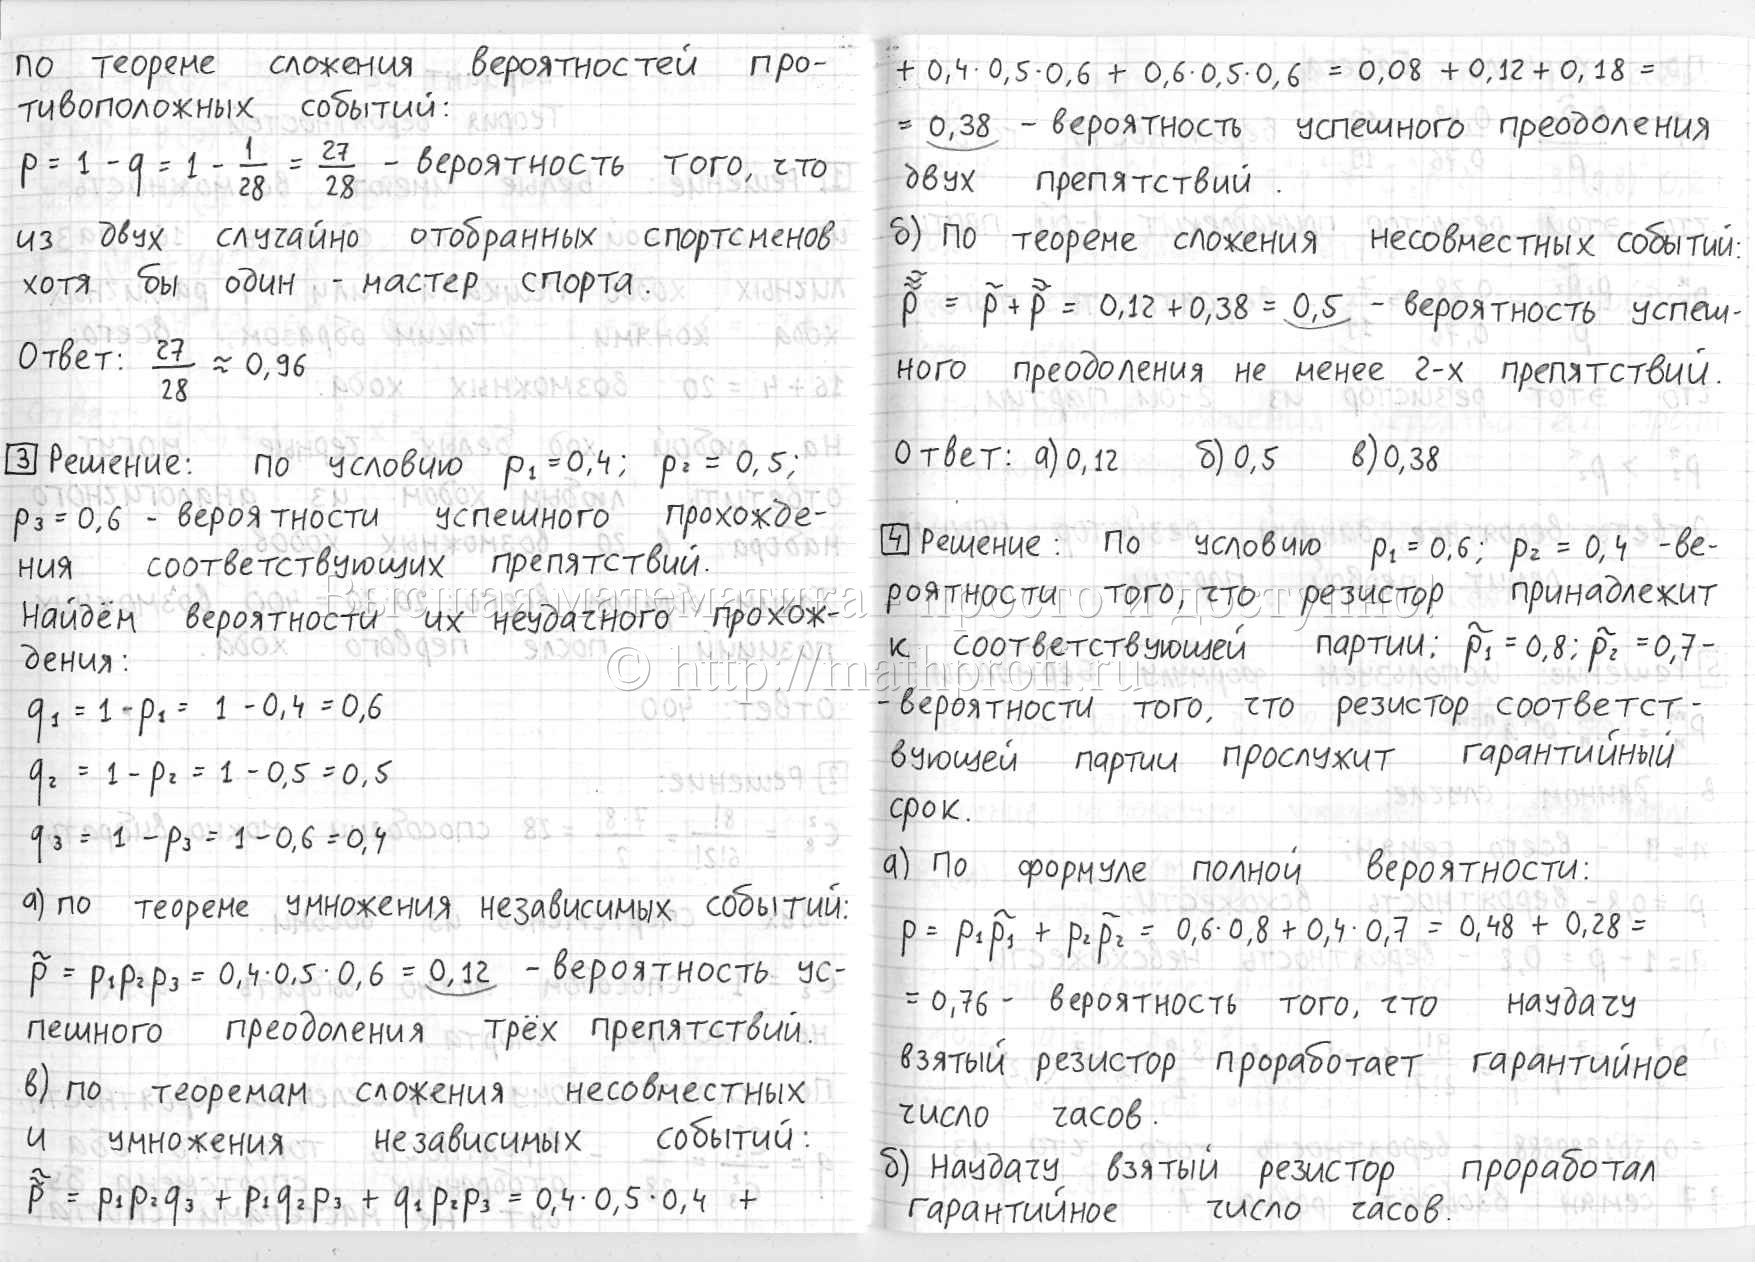 по теореме сложения вероятностей про-
тивоположных событий:
p = 1 - q = 1 - 1/28 = 27/28 - вероятность того, что
из двух случайно отобранных спортсменов
хотя бы один - мастер спорта.
Ответ: 27/28 ≈ 0,96
3 Решение: по условию p₁ = 0,4; p₂ = 0,5;
p₃ = 0,6 - вероятности успешного прохожде-
ния соответствующих препятствий.
Найдём вероятности их неудачного прохож-
дения:
q₁ = 1 - p₁ = 1 - 0,4 = 0,6
q₂ = 1 - p₂ = 1 - 0,5 = 0,5
q₃ = 1 - p₃ = 1 - 0,6 = 0,4
а) по теореме умножения независимых событий:
p̃ = p₁p₂p₃ = 0,4·0,5·0,6 = 0,12 - вероятность ус-
пешного преодоления трёх препятствий.
в) по теоремам сложения несовместных
и умножения независимых событий:
p̃̃ = p₁p₂q₃ + p₁q₂p₃ + q₁p₂p₃ = 0,4·0,5·0,4 +
+ 0,4·0,5·0,6 + 0,6·0,5·0,6 = 0,08 + 0,12 + 0,18 =
= 0,38 - вероятность успешного преодоления
двух препятствий.
б) По теореме сложения несовместных событий:
p̃̃̃ = p̃ + p̃̃ = 0,12 + 0,38 = 0,5 - вероятность успеш-
ного преодоления не менее 2-х препятствий.
Ответ: а) 0,12 б) 0,5 в) 0,38
4 Решение: По условию p₁ = 0,6; p₂ = 0,4 - ве-
роятности того, что резистор принадлежит
к соответствующей партии; p̃₁ = 0,8; p̃₂ = 0,7 -
- вероятности того, что резистор соответст-
вующей партии прослужит гарантийный
срок.
а) По формуле полной вероятности:
p = p₁p̃₁ + p₂p̃₂ = 0,6·0,8 + 0,4·0,7 = 0,48 + 0,28 =
= 0,76 - вероятность того, что наудачу
взятый резистор проработает гарантийное
число часов.
б) Наудачу взятый резистор проработал
гарантийное число часов.
Высшая математика – просто и доступно!
© http://mathprofi.ru